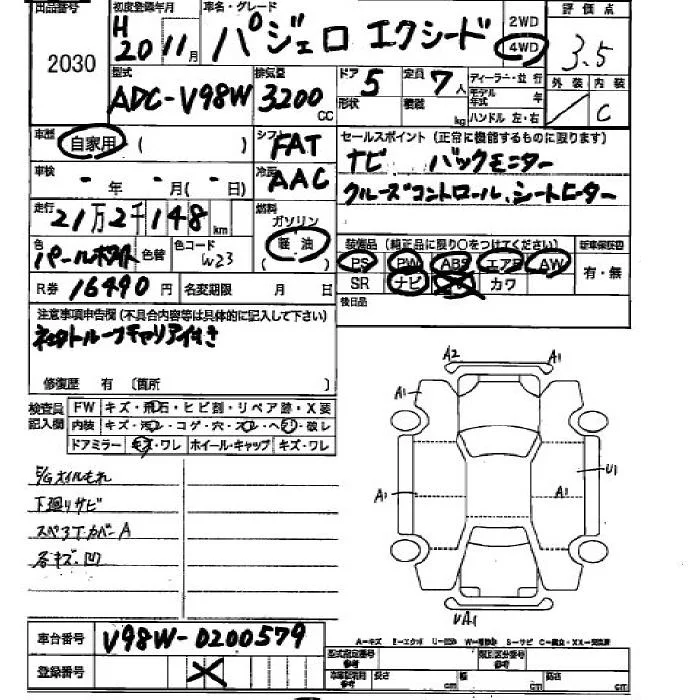 出品番号 初度登録年月 車名・グレード 2WD 評価点
2030 H20 11月 パジェロ エクシード 4WD 3.5
型式 排気量 ドア 5 定員 7人 ディーラー・並行 外装 内装
ADC-V98W 3200cc 形状 積載 kg モデル年式 年 C
ハンドル 左・右
車歴 自家用 ( ) シフト FAT セールスポイント (正常に機能するものに限ります)
車検 - 年 - 月( - 日) 冷房 AAC ナビ バックモニター
クルーズコントロール、シートヒーター
走行 21万2千148km 燃料 ガソリン
軽油 ( )
色 パールホワイト 色替 色コード W23 装備品 (純正品に限り○をつけてください) 新車保証書
PS PW ABS エアB AW 有・無
R券 16490円 名変期限 月 日 SR ナビ カワ
後日品
注意事項申告欄 (不具合内容等は具体的に記入して下さい)
社外ルーフキャリア付き
修復歴 有 (箇所 )
検査員記入欄 FW キズ・飛石・ヒビ割・リペア跡・X要
内装 キズ・汚レ・コゲ・穴・スレ・ヘタリ・破レ
ドアミラー キズ・ワレ ホイール・キャップ キズ・ワレ
E/Gオイルもれ
下廻りサビ
スペアTカバーA
各キズ・凹
A2 A1
A1
A1 A1 U1
UA1
車台番号 V98W-0200579
登録番号 X
A-キズ
型式指定番号 参考 類別区分番号 参考
長さ cm 幅 cm 高さ cm